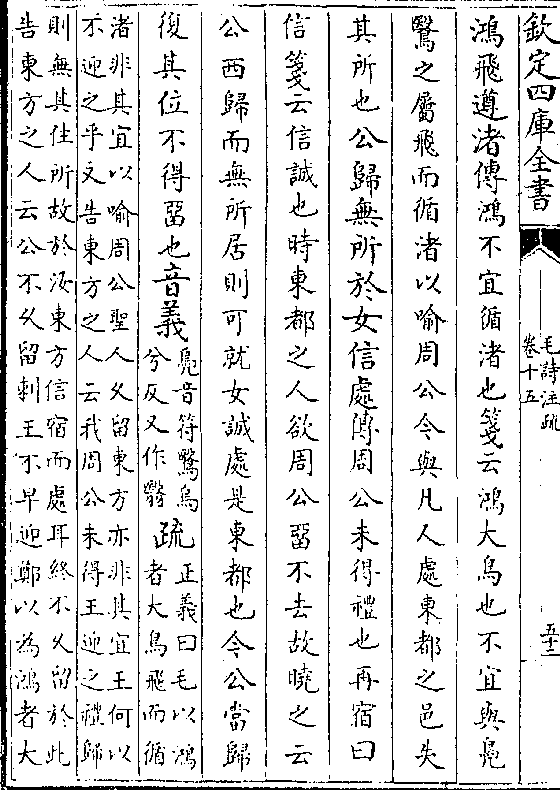 欽定四庫全書
毛詩注疏
卷十五
五十二
鴻飛遵渚傳鴻不宜循渚也箋云鴻大鳥也不宜與鳧
鷖之屬飛而循渚以喻周公今與凡人處東都之邑失
其所也公歸無所於女信處傳周公未得禮也再宿曰
信箋云信誠也時東都之人欲周公留不去故曉之云
公西歸而無所居則可就女誠處是東都也今公當歸
復其位不得留也音義
鳬音符鷖烏
兮反又作鷖
疏
正義曰毛以鴻
者大鳥飛而循
渚非其宜以喻周公聖人久留東方亦非其宜王何以
不迎之乎又告東方之人云我周公未得王迎之禮歸
則無其住所故於汝東方信宿而處耳終不久留於此
告東方之人云公不久留刺王不早迎鄭以為鴻者大